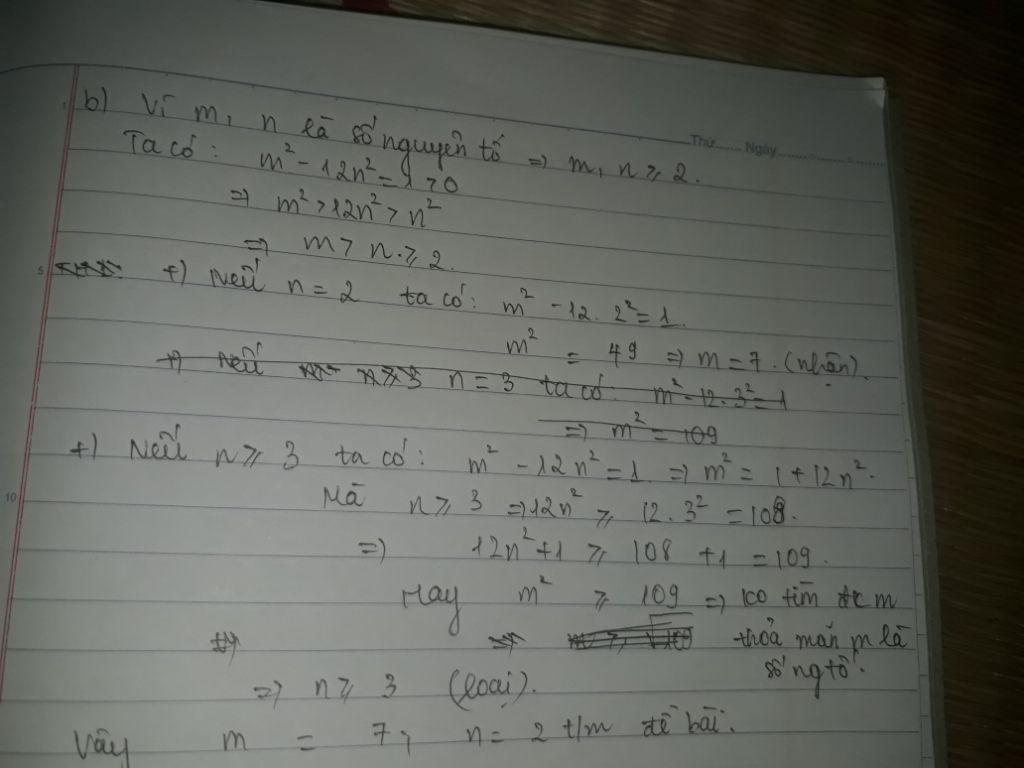 Thứ ........ Ngày ................
b) Vì m, n là số nguyên tố => m, n ⩾ 2.
Ta có: m² - 12n² = 1 > 0
=> m² > 12n² > n²
=> m > n ⩾ 2.
5
+) Nếu n = 2 ta có: m² - 12. 2² = 1.
m² = 49 => m = 7. (nhận).
+) Nếu n ⩾ 3 n = 3 ta có: m² - 12.3² = 1
=> m² = 109
+) Nếu n ⩾ 3 ta có: m² - 12n² = 1 => m² = 1 + 12n².
10
Mà n ⩾ 3 => 12n² ⩾ 12. 3² = 108.
=> 12n² + 1 ⩾ 108 + 1 = 109.
Hay m² ⩾ 109 => ko tìm đc m
thỏa mãn m là
số ng tố.
=> n ⩾ 3 (loại).
Vậy m = 7, n = 2 t/m đề bài.